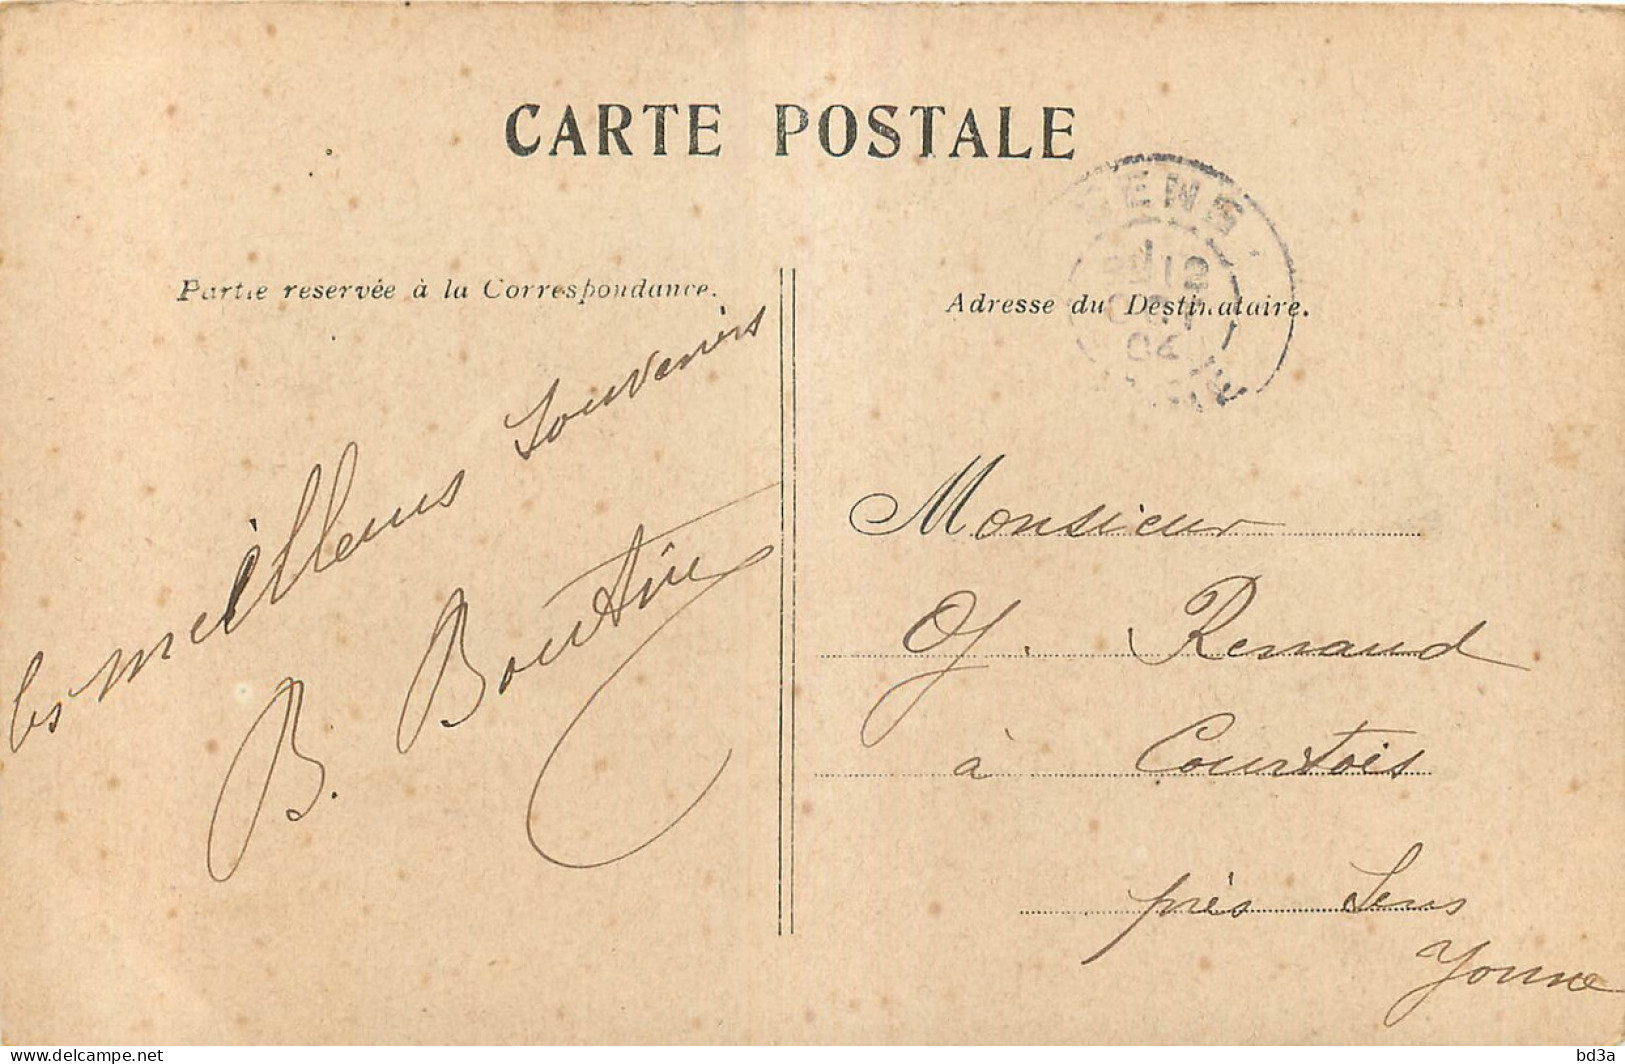 CARTE POSTALE
SENS
OCT
04
Partie reservée à la Correspondance.
Adresse du Destinataire.
les meilleurs souvenirs
B. Boutin
Monsieur
G. Renaud
à Courtois
près Sens
Yonne
www.delcampe.net
bd3a